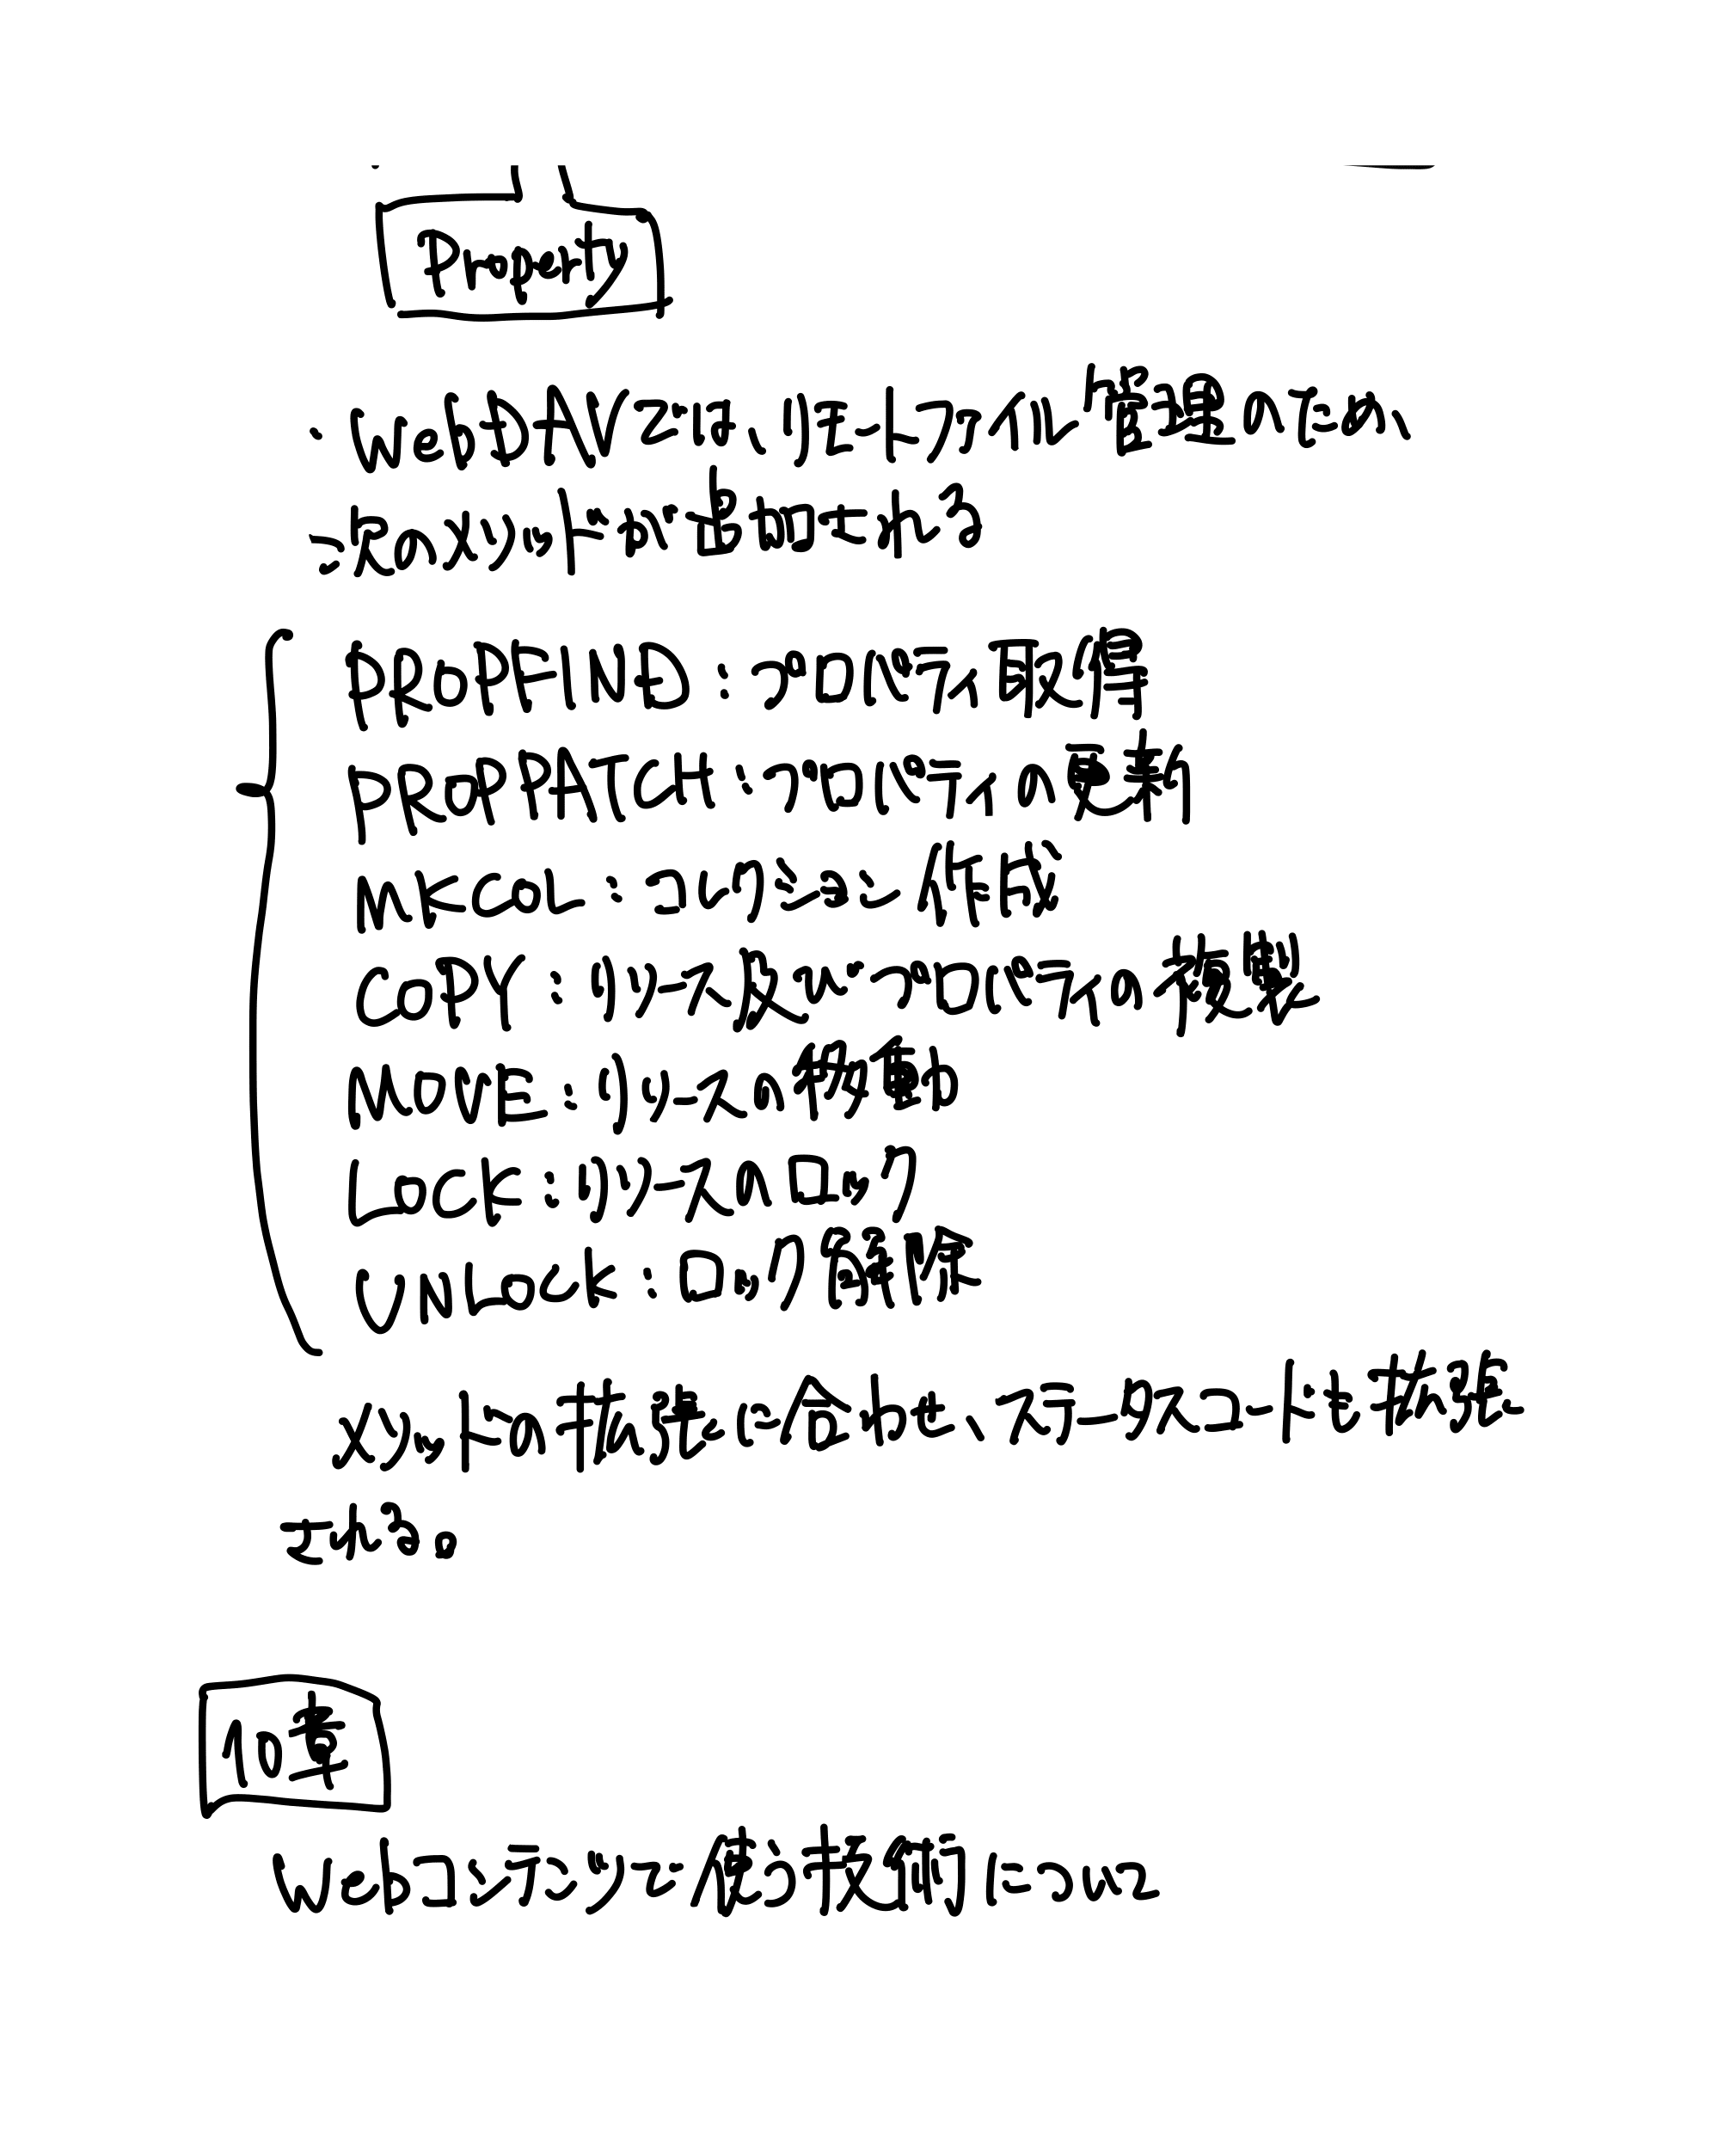 Property
・WebDAVでは、リモートファイル管理のため、
次のメソッドが追加される
PROPFIND:プロパティ取得
PROPPATCH:プロパティの更新
MKCOL:コレクション作成
COPY:リソース及びプロパティの複製
MOVE:リソースの移動
LOCK:リソースのロック
UNLOCK:ロック解除
メソッドの拡張に合わせ、ステータスコードも拡張
される。
10章
Webコンテンツで使う技術について